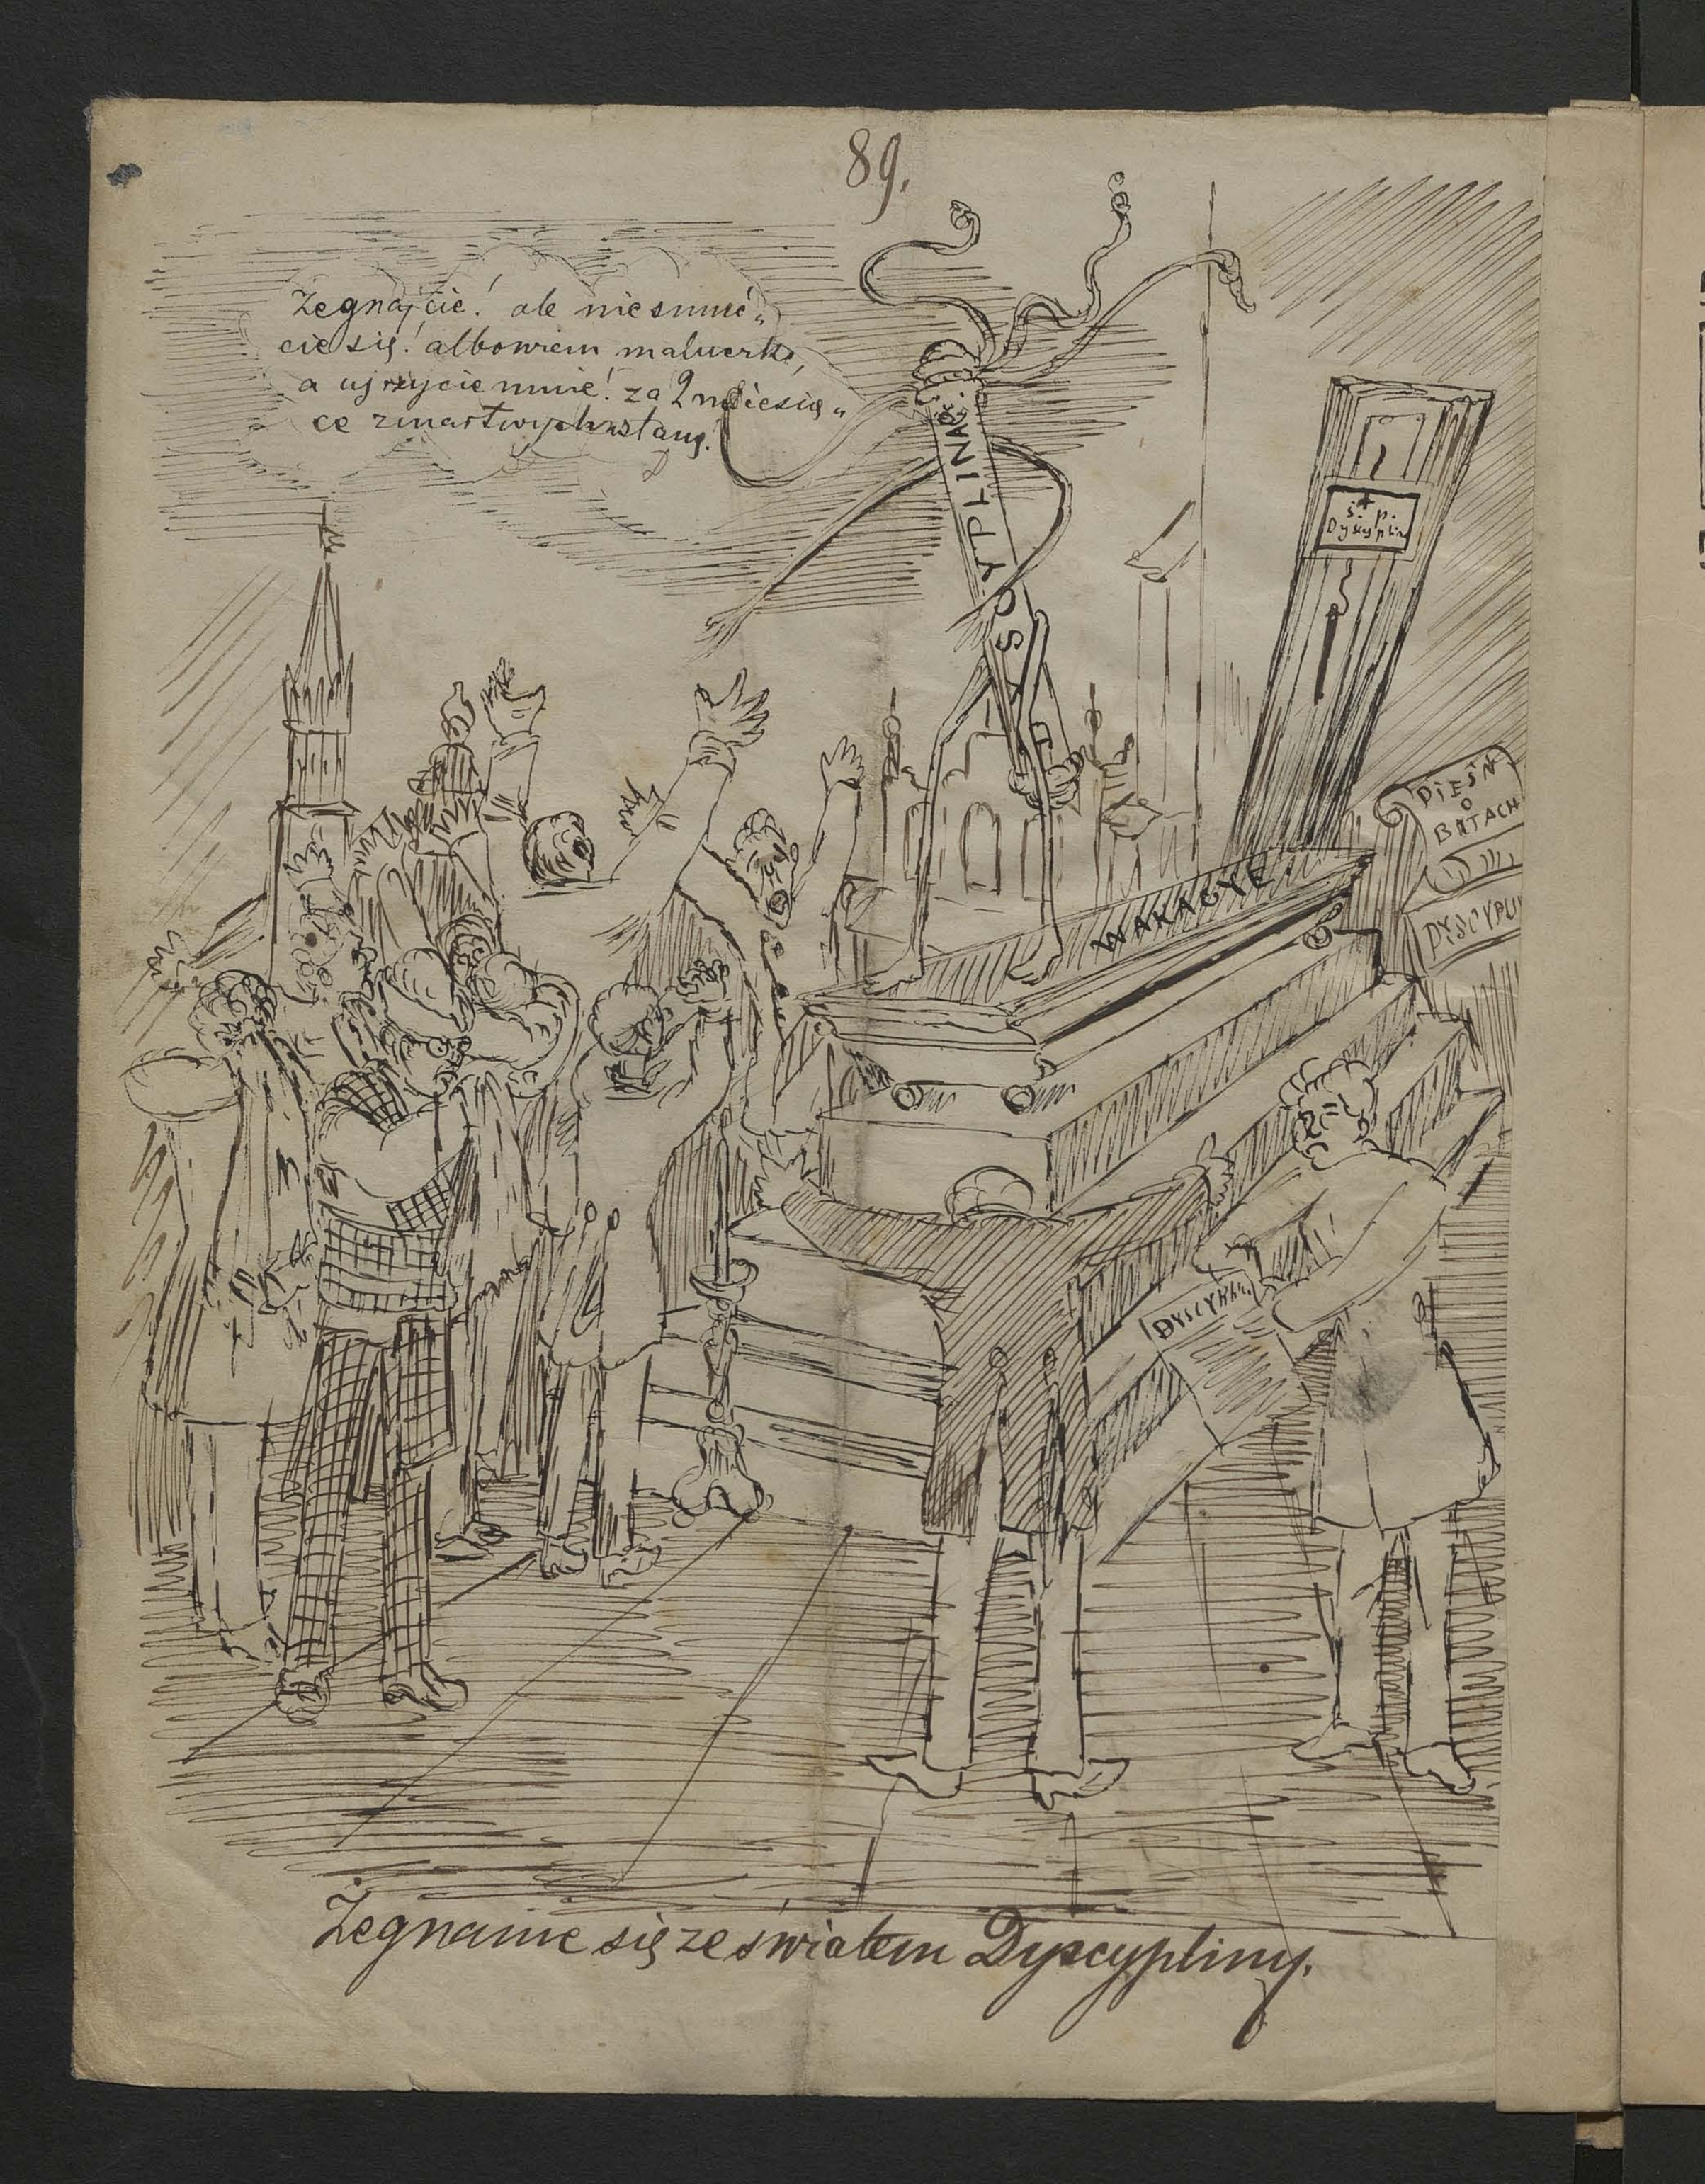 89.
Żegnajcie! ale nie smuć„
cie się! albowiem maluczko,
a ujrzycie mnie! za 2 miesią„
ce zmartwychwstanę.
DYSCYPLINA
ś. + p.
Dyscyplina
PIEŚŃ
O
BATACH
WAKACYE
DYSCYPLI
DYSCYPLI
Żegnanie się ze światem Dyscypliny.